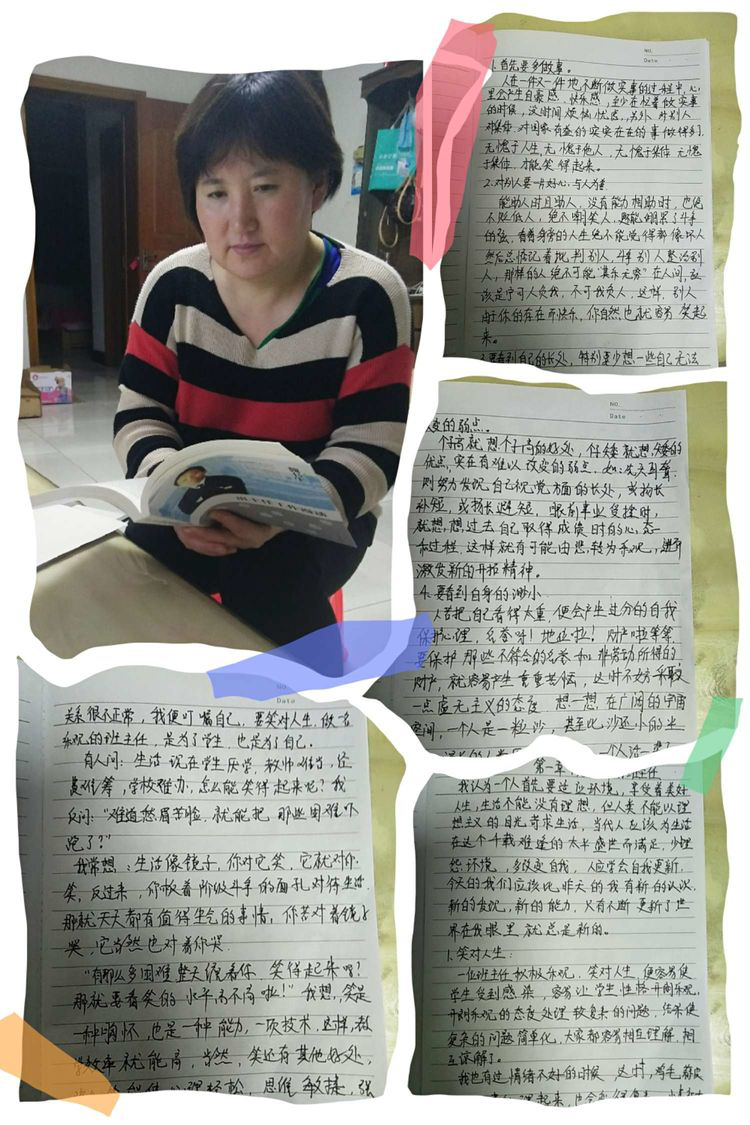 NO.
Date
1.首先要多做事。
人在一件又一件地不断做实事的过程中,心
里会产生自豪感、快乐感,至少在忙着做实事
的时候,没时间烦恼忧愁,另外,对别人
对集体,对国家有益的实实在在的事做得多,
无愧于人生,无愧于他人,无愧于集体,无愧
才能笑得起来。
2.对别人要一片好心,与人为善
能助人时且助人,没有能力相助时,也绝
不贬低人,绝不嘲笑人,
的弦,看着身旁的人生绝不能觉得都像坏人
然后总惦记着批判别人,斗争别人整治别
人,那样的人绝不可能"其乐无穷"在人间,应
该是宁可人负我,不可我负人,这样,别人
由于你的存在而快乐,你自然也就容易笑起
来。
3.要看到自己的长处,特别要少想一些自己无法
NO.
Date
改变的弱点。
个高就想个子高的好处,个矮就想矮的
优点,实在有难以改变的弱点,如:先天耳聋,
则努力发现自己视觉方面的长处,或扬长
补短,或扬长避短,眼前事业受挫时,
就想想过去自己取得成绩时的心态
和过程,这样就有可能由悲转为乐观,进而
激发新的开拓精神。
4.要看到自身的渺小
人若把自己看得太重,便会产生过分的自我
保护心理,名誉呀!地位啦!财产啦等等,
要保护那些不符合的名誉和非劳动所得的
财产,就容易产生重重苦恼,这时不妨采取
一点虚无主义的态度,想一想,在广阔的宇宙
空间,一个人是一粒沙,甚至比沙还小的尘
NO
关系很不正常,我便叮嘱自己,要笑对人生,做一名
乐观的班主任,是为了学生,也是为了自己。
有人问:生活 现在学生厌学,教师难当,经
费难筹,学校难办,怎么能笑得起来呢?我
反问:"难道愁眉苦脸,就能把那些困难吓
跑了?"
我常想:生活像镜子,你对它笑,它就对你
笑,反过来,你板着阶级斗争的面孔对待生活
那就天天都有值得生气的事情,你苦对着镜子
哭,它当然也对着你哭
"有那么多困难整天绕着你,笑得起来吗?
那就要看笑的水平高不高啦!"我想,笑是
一种胸怀,也是一种能力,一项技术,这样,教
学效率就能高,当然,笑还有其他好处,
心理轻松,思维敏捷,强
第一章
我认为一个人首先要适应环境,享受着美好
人生,生活不能没有理想,但人类不能以理
想主义的目光苛求生活,当代人应该为生活
在这个千载难逢的太平盛世而满足,少埋
怨环境,多改变自我,人应学会自我更新,
今天的我们应该比昨天的我有新的认识,
新的发现,新的能力,只有不断更新了世
界在我眼里就总是新的。
1.笑对人生:
一位班主任积极乐观,笑对人生,便容易使
学生受到感染,容易让学生性格开朗乐观,
开朗乐观的态度处理较复杂的问题,结果使
复杂的问题简单化,大家都容易相互理解,相
互谅解了。
我也有过情绪不好的时候,这时,鸡毛蒜皮